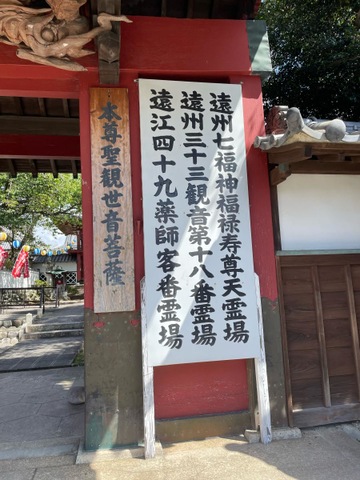 遠州七福神福禄寿尊天霊場
遠州三十三観音第十八番霊場
遠江四十九薬師客番霊場
本尊聖観世音菩薩